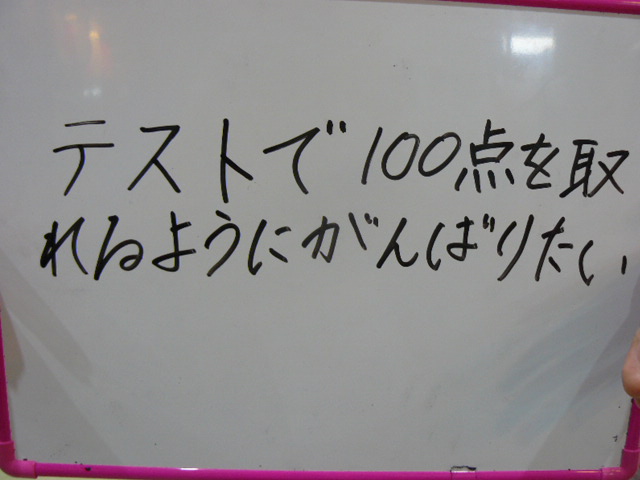 テストで100点を取
れるようにがんばりたい